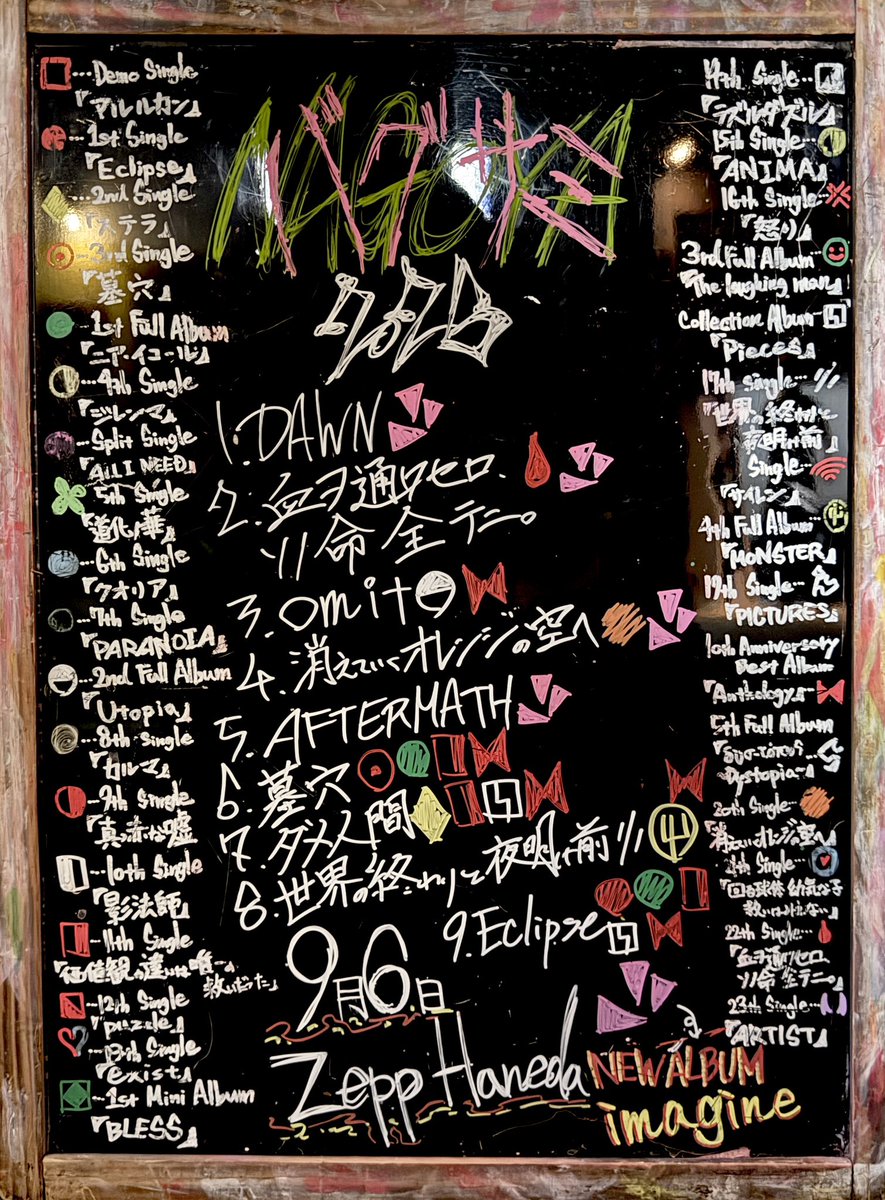 …Demo Single
『アルルカン』
…1st Single
『Eclipse』
…2nd Single
『ステラ』
…3rd Single
『墓穴』
…1st Full Album
『ニア・イコール』
…4th Single
『ジレンマ』
…Split Single
『ALL I NEED』
…5th Single
『道化ノ華』
…6th Single
『クオリア』
…7th Single
『PARANOIA』
…2nd Full Album
『Utopia』
…8th Single
『カルマ』
…9th Single
『真っ赤な嘘』
…10th Single
『影法師』
…11th Single
『価値観の違いは唯一の
救いだった』
…12th Single
『puzzle』
…13th Single
『exist』
…1st Mini Album
『BLESS』
バグサミ
NAGOYA
1.DAWN
2.血ヲ通ワセロ、
ソノ命全テニ。
3.omit
4.消えていくオレンジの空へ
5.AFTERMATH
6.墓穴
7.ダメ人間
8.世界の終わりと夜明け前
9.Eclipse
9月6日
Zepp Haneda
NEW ALBUM
imagine
14th Single…
『ラズルダズル』
15th Single…
『ANIMA』
16th Single…
『怒り』
3rd Full Album…
『The laughing man』
Collection Album…
『Pieces』
17th Single…
『世界の終わりと
夜明け前』
Single…
『サイレン』
4th Full Album…
『MONSTER』
19th Single…
『PICTURES』
10th Anniversary
Best Album
『Anthology』…
5th Full Album
Dystopia』
20th Single…
『消えていくオレンジの空へ』
21th Single…
22th Single…
『血ヲ通ワセロ
ソノ命全テニ。』
23th Single…
『ARTIST』